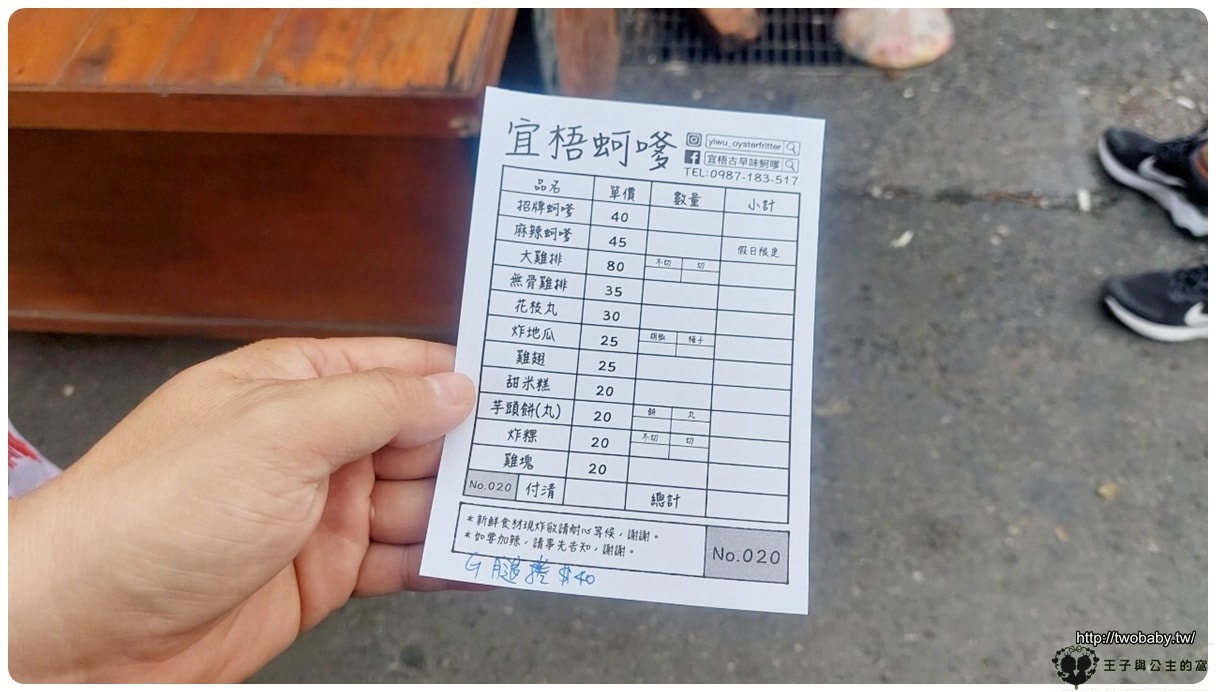 宜梧蚵嗲
yiwu_oysterfritter
宜梧古早味蚵嗲
TEL:0987-183-517
品名 單價 數量 小計
招牌蚵嗲 40
麻辣蚵嗲 45 假日限定
大雞排 80 不切 切
無骨雞排 35
花枝丸 30
炸地瓜 25 胡椒 梅子
雞翅 25
甜米糕 20
芋頭餅(丸) 20 餅 丸
炸粿 20 不切 切
雞塊 20
No.020 付清 總計
*新鮮食材現炸敬請耐心等候,謝謝。
*如要加辣,請事先告知,謝謝。
No.020
腿捲 $40
http://twobaby.tw/
王子與公主的窩